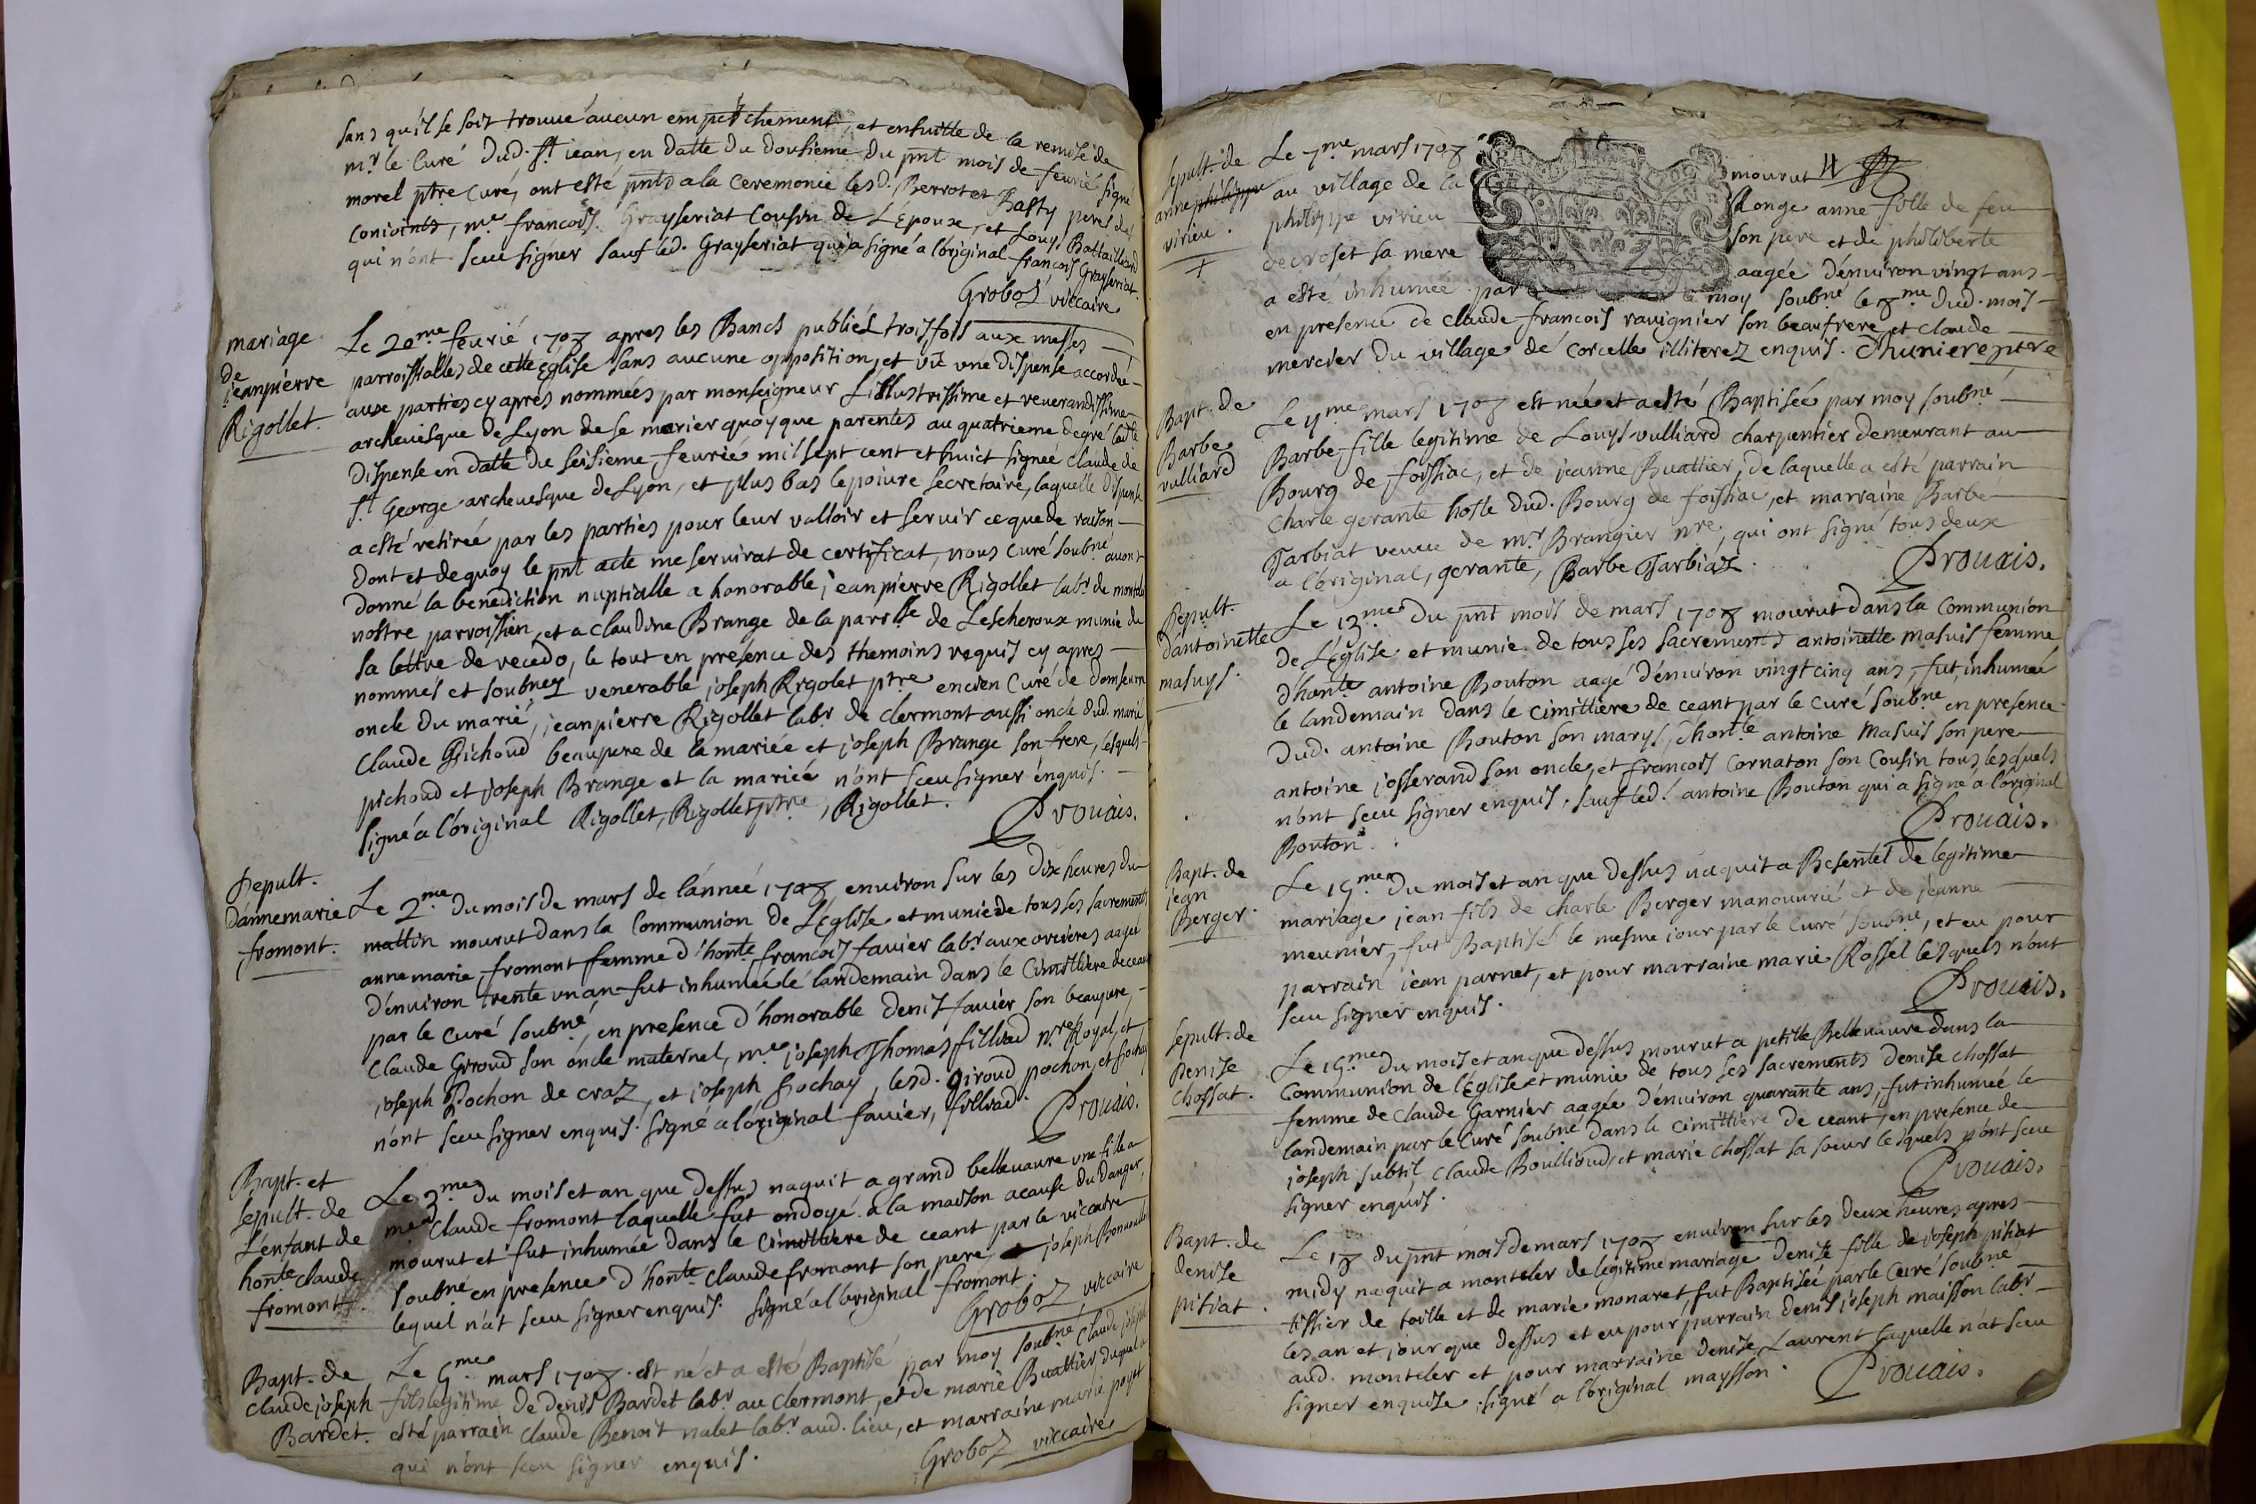 sans qu'il se soit trouué aucun empechement, et ensuitte de la remise de
mr. le Curé dud. st. iean, en datte du dousieme du pnt mois de feurié signé
morel ptre curé, ont esté pnts a la ceremonie lesd. Berrot et Basty peres des
conioints, me. francois Grayseriat cousin de L'Epoux, et Louys Battailliard
qui n'ont sceu signer sauf led. Grayseriat qui a signé a l'original francois Grayseriat.
Groboz viccaire
mariage
de
jeanpierre
Rigollet.
Le 20me feurié 1708 apres les Bancs publiés trois fois aux messes
parroissialles de cette Eglise sans aucune opposition, et vû une dispense accordée
aux parties cy aprés nommées par monseigneur Lillustrissime et reuerandissime
archeuisque de Lyon de se marier quoyque parentes au quatrieme degré ladte
dispense en datte du seisieme feurié mil sept cent et huict signee claude de
st George archeuesque de Lyon, et plus bas lepoiure secretaire, laquelle dispense
a esté retirée par les parties pour leur valloir et seruir ce que de raison
dont et de quoy le pnt acte me seruirat de certificat, nous curé soubné auont
donné la benediction nuptialle a honorable jeanpierre Rigollet labr. de montcler
nostre parroissien, et a claudine Brange de la parrsse de Lescheroux munie de
sa lettre de recedo, le tout en présence des themoins requis cy apres
nommés et soubnez venerable joseph Rigolet ptre encien Curé de domseure
oncle du marié, jeanpierre Rigollet labr de clermont aussi oncle dud. marié
claude Pichoud beaupere de la mariée et joseph Brange son frere, lesquels
pichoud et joseph Brange et la mariée n'ont sceu signer enquis.
signé a l'original Rigollet, Rigollet ptre, Rigollet.
Prouais.
Sepult.
D'annemarie
fromont.
Le 2me du mois de mars de l'année 1708 enuiron sur les dix heures du
mattin mourut dans la Communion de L'Eglise et munie de tous ses sacrements
anne marie fromont femme d'honte francois fauier labr aux oruieres aagée
d'enuiron trente un an fut inhumée le landemain dans le Cimittiere de ceant
par le curé soubné, en presence d'honorable denis fauier son beaupere,
claude Giroud son oncle maternel, me joseph Thomas filliod nre Royal, et
joseph Pochon de craz, et joseph Gochay, lesd. Giroud pochon, et Gochay
n'ont sceu signer enquis. signé a l'original fauier, filliod.
Prouais.
Bapt. et
sepult. de
L'enfant de
honte claude
fromont.
Le 3me du mois et an que dessus naquit a grand belleuaure une fille a
me claude fromont laquelle fut ondoyé a la maison a cause du danger,
mourut et fut inhumée dans le cimittiere de ceant par le viccaire
soubné en presence d'honte claude fromont son pere, joseph
lequel n'at sceu signer enquis. signé a l'original fromont.
Groboz viccaire
Bapt. de
claude joseph
Bardet.
Le 5me mars 1708 est né et a esté Baptisé par moy soubné claude joseph
fils legitime de denis Bardet labr au clermont, et de marie Buattier duquel a
esté parrain claude Benoit nalet labr aud. lieu, et marraine marie poyet
qui n'ont sceu signer enquis.
Groboz viccaire
sepult. de
anne philippe
virieu.
Le 7me mars 1708 mourut
au village de la Ronge anne fille de feu
philippe virieu son pere et de philiberte
decroset sa mere aagée d'enuiron vingt ans
a esté inhumée par moy soubné le 8me dud. mois
en presence de claude francois rauignier son beaufrere et claude
mercier du village de corcelle illiterez enquis. Thuniere ptre
Bapt. de
Barbe
vulliard
Le 9me mars 1708 est née et a esté Baptisée par moy soubné
Barbe fille legitime de Louys vulliard charpentier demeurant au
Bourg de foissiac, et de jeanne Buattier, de laquelle a esté parrain
charle gerante hoste dud. Bourg de foissiac, et marraine Barbe
Tarbiat veuue de mr Brangier nre, qui ont signé tous deux
a l'original, gerante, Barbe Tarbiaz.
Prouais.
Sepult.
d'antoinette
masuys.
Le 13me du pnt mois de mars 1708 mourut dans la Communion
de L'Eglise et munie de tous ses sacrements antoinette masuis femme
d'honte antoine Bouton aagé d'enuiron vingt cinq ans, fut inhumée
le landemain dans le cimittiere de ceant par le curé soubne en presence
dud. antoine Bouton son marys, d'honte antoine Masuis son pere
antoine josserand son oncle, et francois cornaton son cousin tous lesquels
n'ont sceu signer enquis. sauf led. antoine Bouton qui a signé a l'original
Bouton.
Prouais.
Bapt. de
jean
Berger.
Le 15me du mois et an que dessus naquit a Besentet de legitime
mariage jean fils de charle Berger manouurié et de jeanne
meunier, fut Baptisé le mesme jour par le curé soubné, et eu pour
parrain jean parnet, et pour marraine marie Rossel lesquels n'ont
sceu signer enquis.
Prouais.
sepult. de
Denise
chossat.
Le 15me du mois et an que dessus mourut a petitte Belleuaure dans la
Communion de l'Eglise et munie de tous ses sacrements denise chossat
femme de claude Garnier aagée d'enuiron quarante ans, fut inhumée le
landemain par le curé soubné dans le cimittiere de ceant, en presence de
joseph subtil claude Boullioud, et marie chossat sa soeur lesquels n'ont sceu
signer enquis.
Prouais.
Bapt. de
denise
pitiat.
Le 18 du pnt mois de mars 1708 enuiron sur les deux heures apres
midy naquit a montcler de legitime mariage denise fille de joseph pitiat
tissier de toille et de marie monaret, fut Baptisée par le curé soubné
les an et jour que dessus et eu pour parrain denis joseph maisson labr
aud. montcler et pour marraine denise Laurent laquelle n'at sceu
signer enquise. signé a l'original maysson.
Prouais.